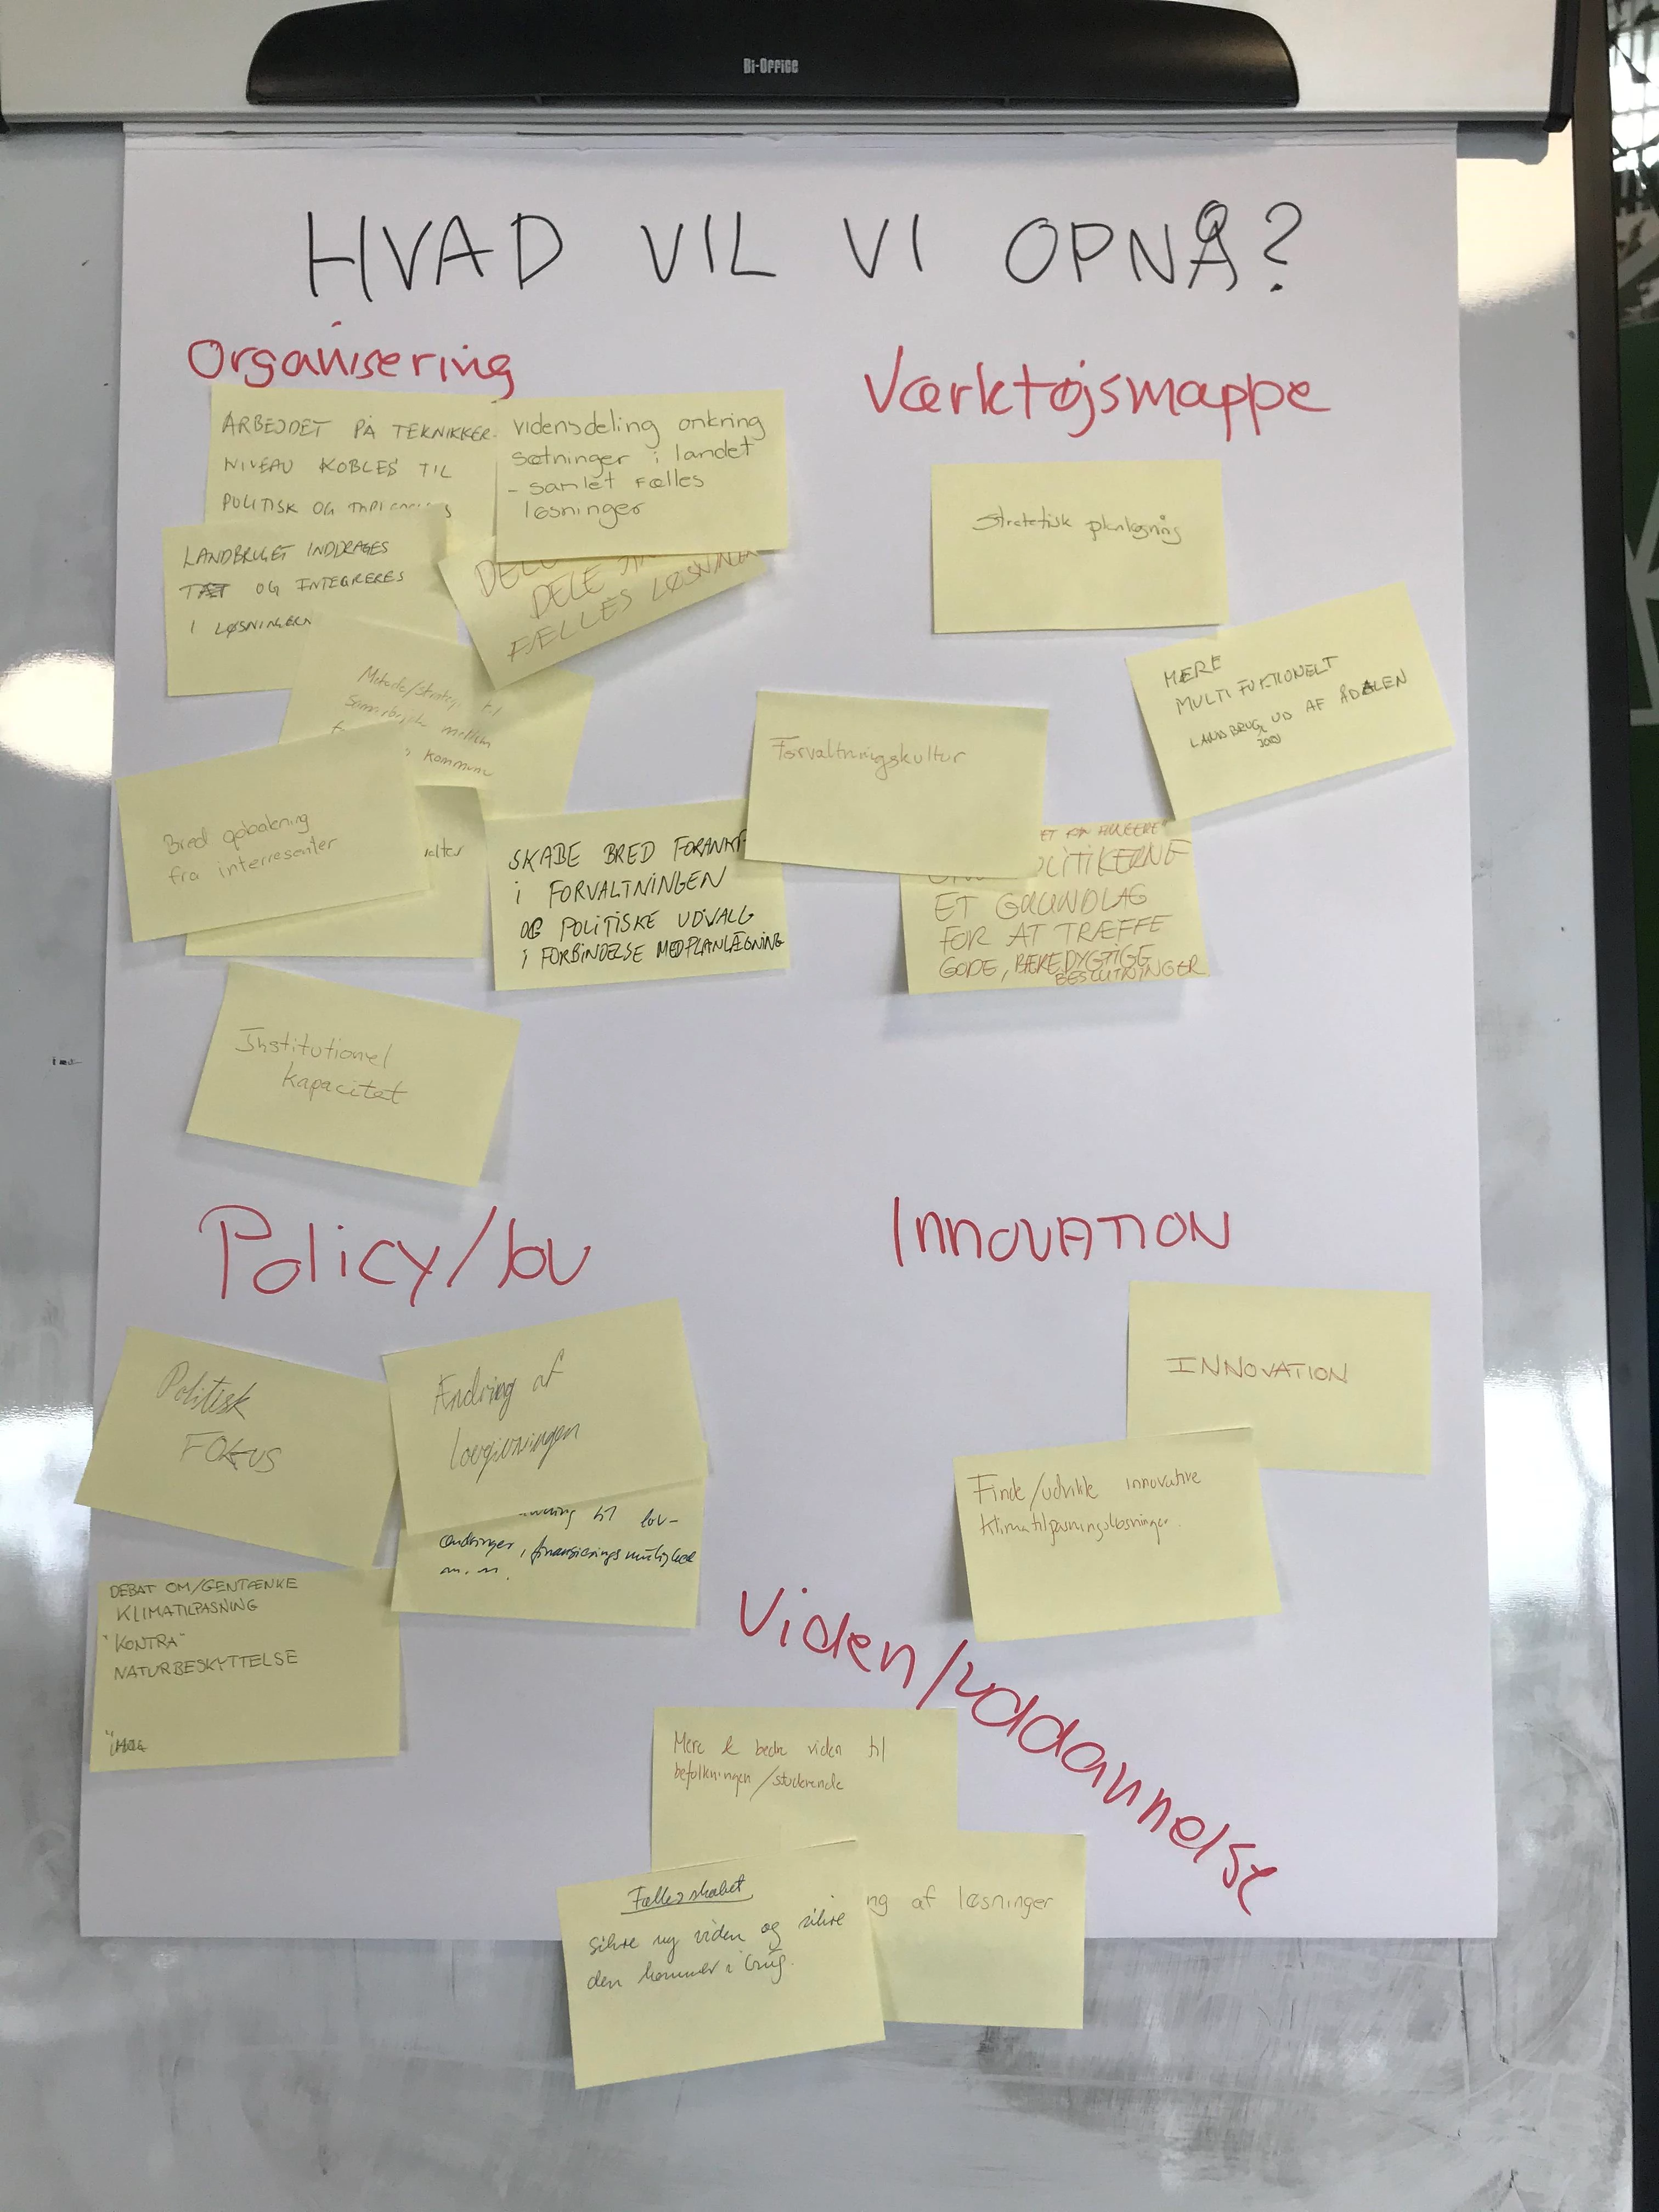 Bi-Office
HVAD VIL VI OPNÅ?
Organisering
ARBEJDET PÅ TEKNIKKER-
NIVEAU KOBLES TIL
POLITISK OG
vidensdeling onkring
sætninger i landet
- samlet fælles
løsninger
LANDBRUGET INDDRAGES
TÆT OG INTEGRERES
I LØSNINGERN
DELE
FÆLLES LØSNINGER
Metode/strategi til
samarbejde mellem
kommune
Bred opbakning
fra interresenter
SKABE BRED FORANKR
i FORVALTNINGEN
OG POLITISKE UDVALG
i FORBINDELSE MED PLANLÆGNING
Institutionel
kapacitet
Værktøjsmappe
Stratetisk planlægning
MERE
MULTIFUKTIONELT
LANDBRUG UD AF ÅDALEN
JORD
Forvaltningskultur
POLITIKERNE
ET GRUNDLAG
FOR AT TRÆFFE
GODE, BÆREDYGTIGE
BESLUTNINGER
Policy/lov
Politisk
FOKUS
Ændring af
lovgivningen
til lov-
ændringer, finansieringsmulighed
m.m.
DEBAT OM/GENTÆNKE
KLIMATILPASNING
"KONTRA"
NATURBESKYTTELSE
INNOVATION
INNOVATION
Finde/udvikle innovative
klimatilpasningsløsninger.
Viden/uddannelse
Mere & bedre viden til
befolkningen/studerende
Fællesskabet
sikre ny viden og sikre
den kommer i brug.
ng af løsninger